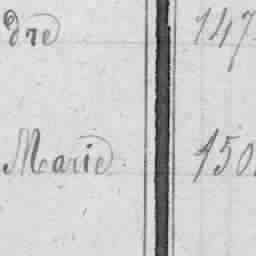 dre 147
Marie 150